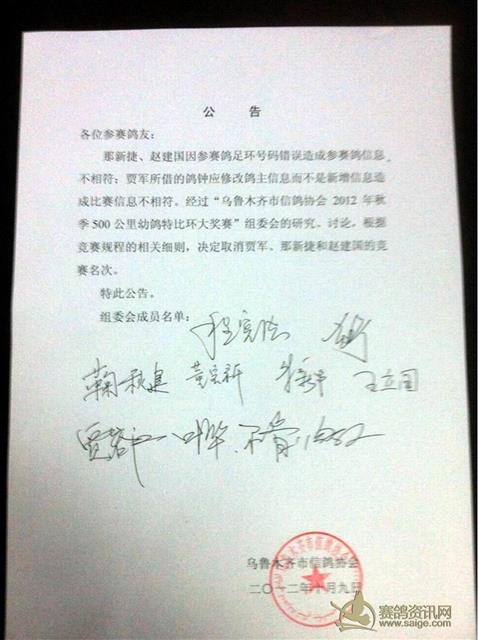 公 告
各位参赛鸽友：
那新捷、赵建国因参赛鸽足环号码错误造成参赛鸽信息
不相符；贾军所借的鸽钟应修改鸽主信息而不是新增信息造
成比赛信息不相符。经过“乌鲁木齐市信鸽协会 2012 年秋
季 500 公里幼鸽特比环大奖赛”组委会的研究、讨论，根据
竞赛规程的相关细则，决定取消贾军、那新捷和赵建国的竞
赛名次。
特此公告。
组委会成员名单：
王立国
乌鲁木齐市信鸽协会
二〇一二年十月九日
赛鸽资讯网
www.saige.com